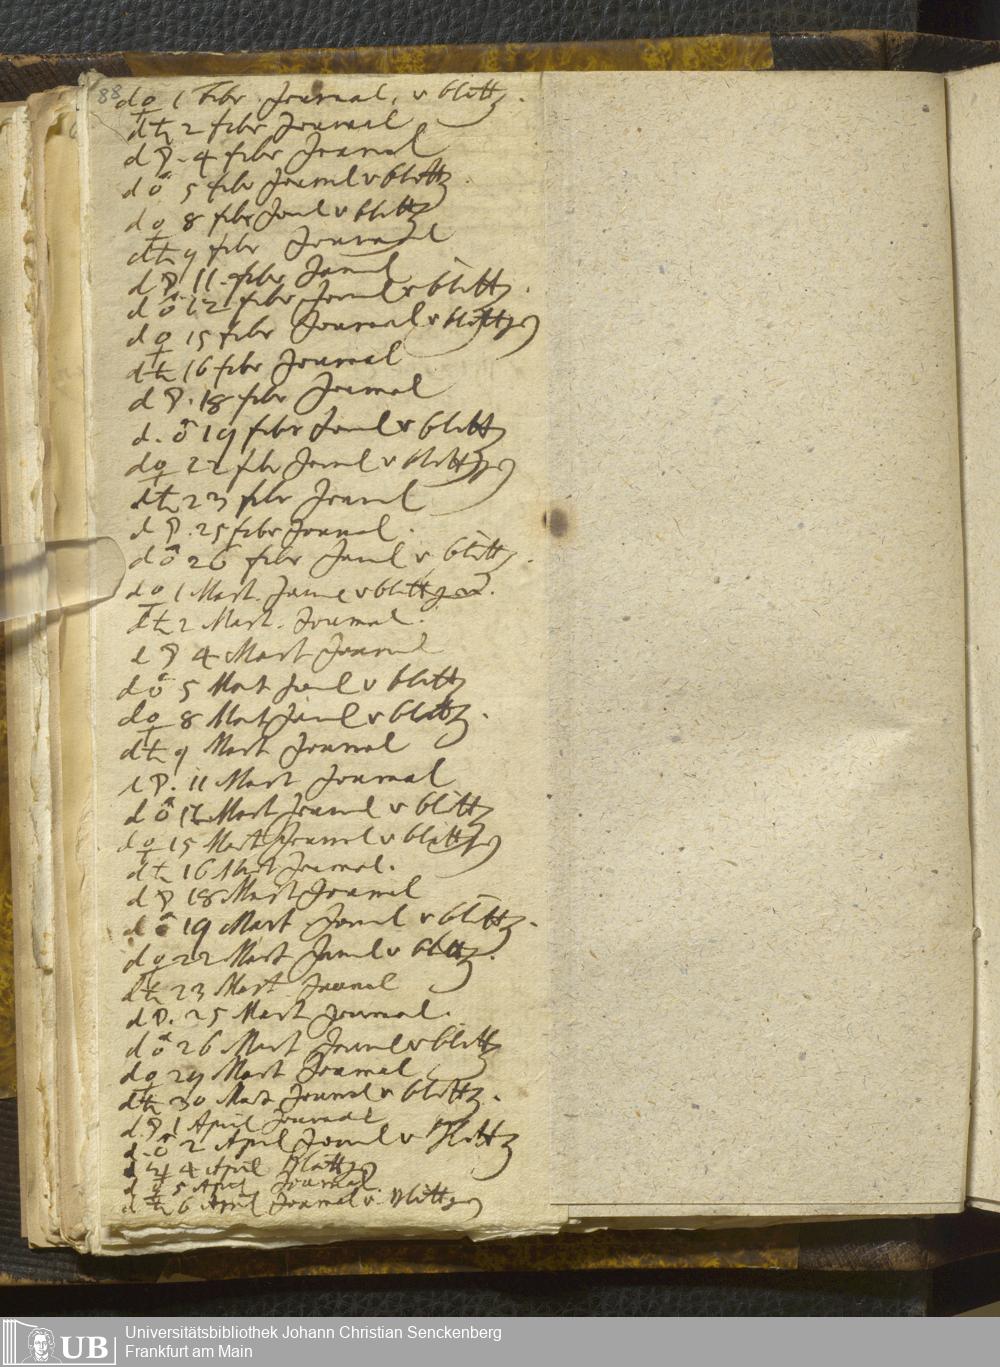 88
d ♀ 1 Febr Journal, v blettg.
d ♄ 2 febr Journal
d ☽. 4 febr Journal
d ♂ 5 febr Journl v blettg.
d ♀ 8 febr Jornl v blettg
d ♄ 9 febr Journal
d ☽ 11 febr Jornl
d ♂ 12 febr Jornl v blettg.
d ♀ 15 febr Journal v blettg
d ♄ 16 febr Journal
d ☽. 18 febr Journal
d. ♂ 19 febr Jornl v blettg
d ♀ 22 febr Jornl v blettg
d ♄ 23 febr Journl
d ☽. 25 febr Journal.
d ♂ 26 febr Jornl v blettg.
d ♀ 1 Mart. Jornl v blettg
d ♄ 2 Mart. Journal.
d ☽ 4 Mart Journl
d ♂ 5 Mart Jornl v blettg
d ♀ 8 Mart Jornl v blettg.
d ♄ 9 Mart Journal
d ☽. 11 Mart Journal
d ♂ 12 Mart Journl v blettg
d ♀ 15 Mart Journl v blettg
d ♄ 16 Mart Journal.
d ☽ 18 Mart Journal
d ♂ 19 Mart Jornl v blettg.
d ♀ 22 Mart Jornl v blettg.
d ♄ 23 Mart Journal
d ☽. 25 Mart Journal.
d ♂ 26 Mart Journl v blettg
d ♀ 29 Mart Journal
d ♄ 30 Mart Journal v blettg.
d. ☽. 1 April Journal
d. ♂ 2 April Jornl v Blettg
d ♃ 4 April Blettg
d ♀ 5 April Journal.
d ♄ 6 April Journal v. Blettg
UB
Universitätsbibliothek Johann Christian Senckenberg
Frankfurt am Main